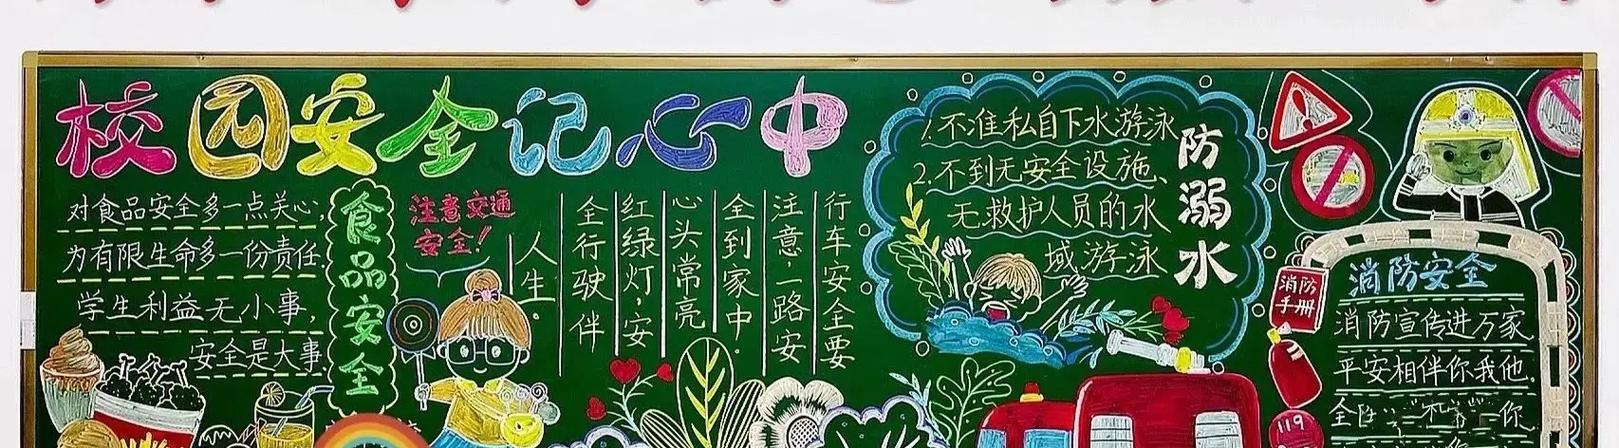 校园安全记心中
对食品安全多一点关心,
为有限生命多一份责任
学生利益无小事,
安全是大事
食品安全
注意交通
安全!
行车安全要
注意,一路安
全到家中.
心头常亮
红绿灯,安
全行驶伴
人生.
防溺水
1.不准私自下水游泳
2.不到无安全设施、
无救护人员的水
域游泳
消防
手册
119
消防安全
消防宣传进万家
平安相伴你我他.
全
你